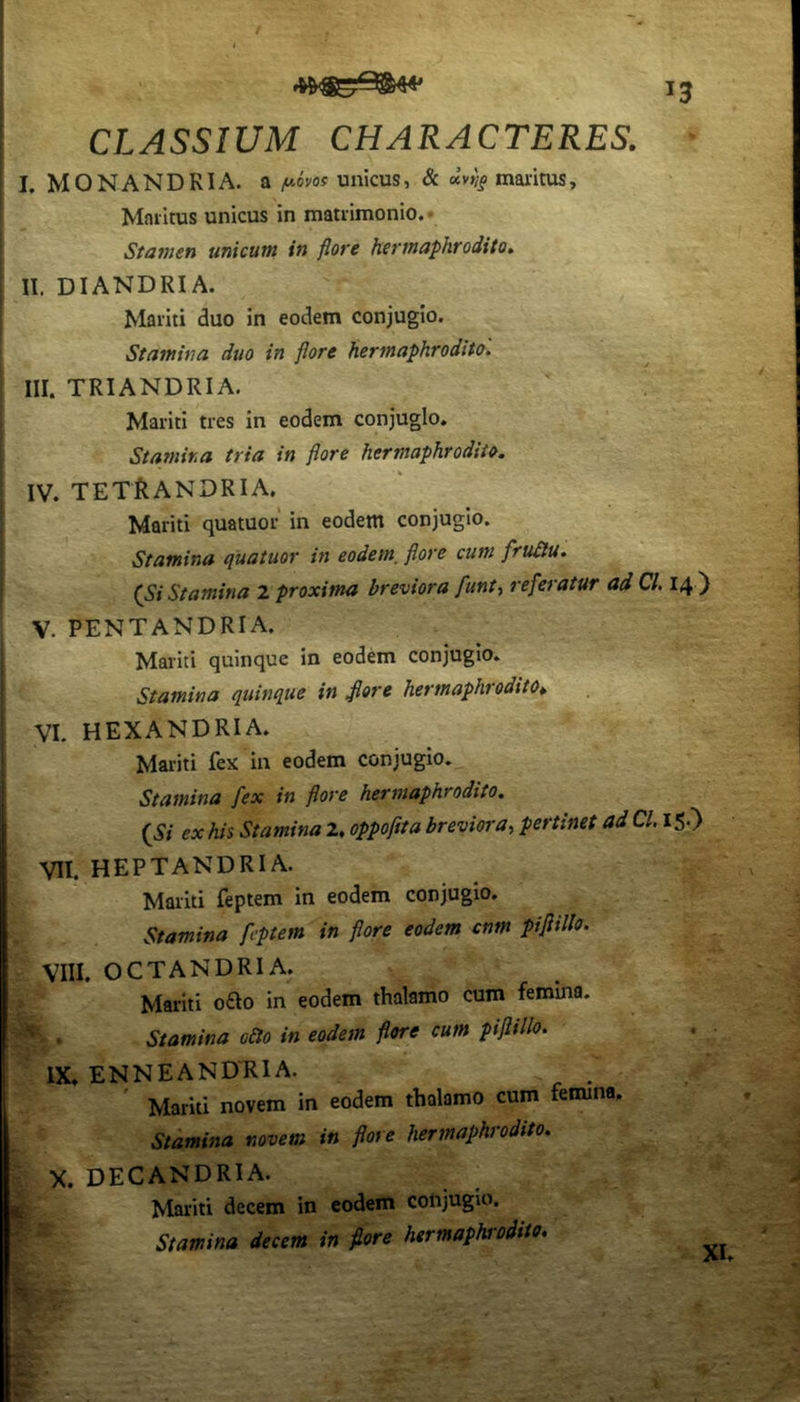 13
CLASSIUM CHARACTERES.
I. MONANDRIA. a μόνος unicus, & ἀνὴρ maritus,
Maritus unicus in matrimonio.
Stamen unicum in flore hermaphrodito.
II. DIANDRIA.
Mariti duo in eodem conjugio.
Stamina duo in flore hermaphrodito.
III. TRIANDRIA.
Mariti tres in eodem conjugio.
Stamina tria in flore hermaphrodito.
IV. TETRANDRIA.
Mariti quatuor in eodem conjugio.
Stamina quatuor in eodem flore cum fructu.
(Si Stamina 2 proxima breviora ſunt, referatur ad Cl. 14)
V. PENTANDRIA.
Mariti quinque in eodem conjugio.
Stamina quinque in flore hermaphrodito.
VI. HEXANDRIA.
Mariti ſex in eodem conjugio.
Stamina ſex in flore hermaphrodito.
(Si ex his Stamina 2, oppoſita breviora, pertinet ad Cl. 15.)
VII. HEPTANDRIA.
Mariti ſeptem in eodem conjugio.
Stamina ſeptem in flore eodem cnm piſtillo.
VIII. OCTANDRIA.
Mariti octo in eodem thalamo cum femina.
Stamina octo in eodem flore cum piſtillo.
IX. ENNEANDRIA.
Mariti novem in eodem thalamo cum femina.
Stamina novem in flore hermaphrodito.
X. DECANDRIA.
Mariti decem in eodem conjugio.
Stamina decem in flore hermaphrodito.
XI.